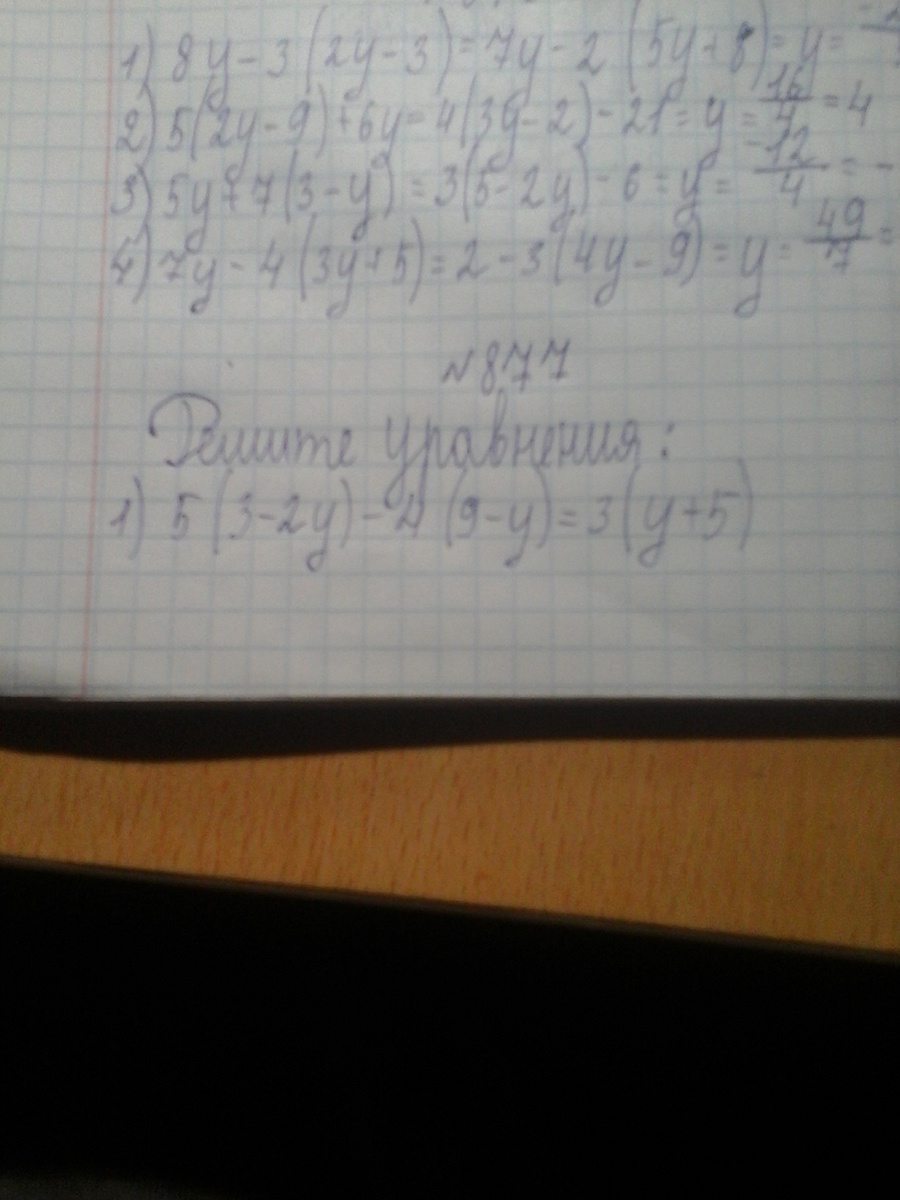 1) 8y - 3(2y - 3) = 7y - 2(5y + 8) = y =
2) 5(2y - 9) + 6y = 4(3y - 2) - 21 = y = 16/4 = 4
3) 5y + 7(3 - y) = 3(5 - 2y) - 6 = y = -12/4 = -
4) 7y - 4(3y + 5) = 2 - 3(4y - 9) = y = 49/7 =
№877
Решите уравнения:
1) 5(3 - 2y) - 4(9 - y) = 3(y + 5)